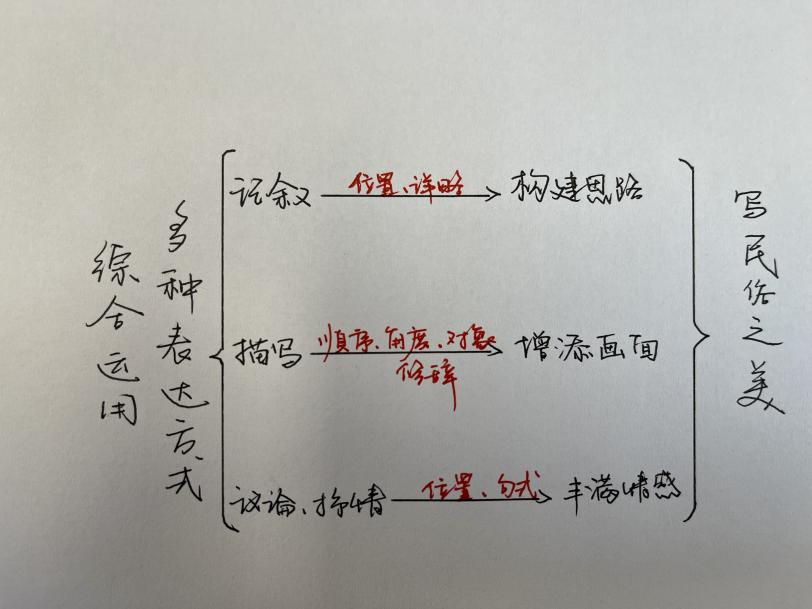 综合运用
多种表达方式
记叙
位置、详略
构建思路
描写
顺序、角度、对象
修辞
增添画面
议论、抒情
位置、句式
丰满情感
写民俗之美